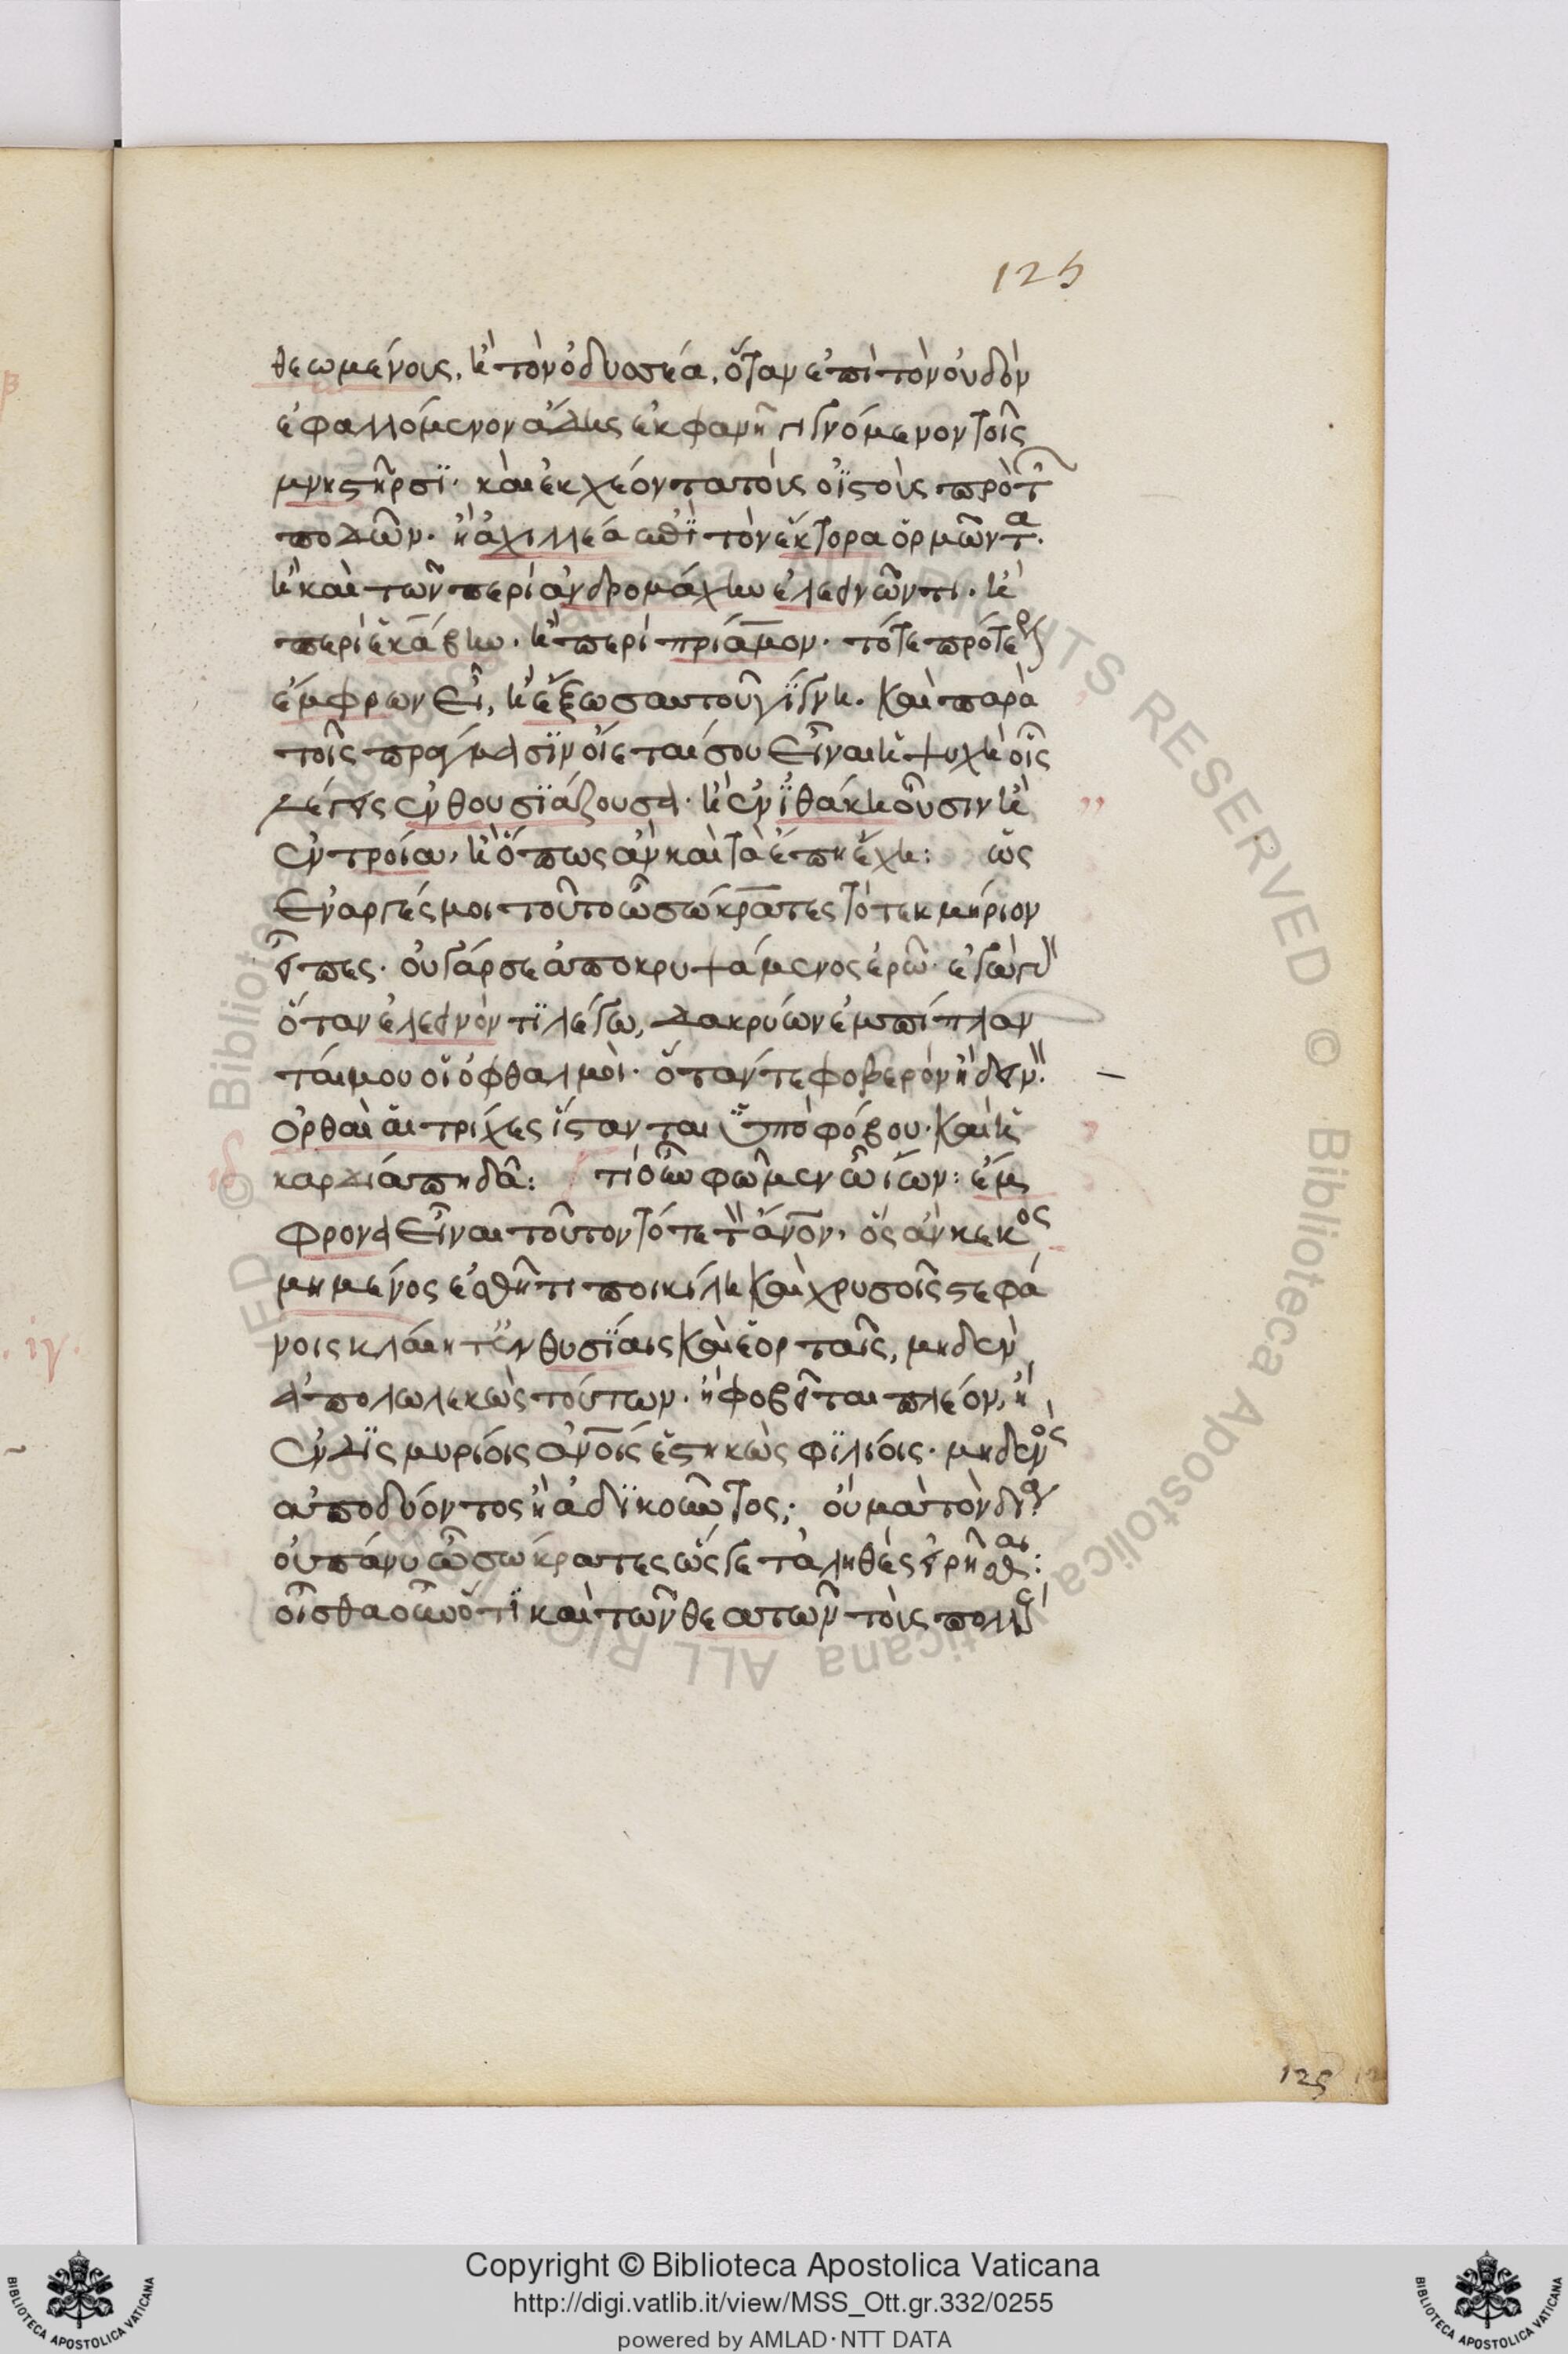 125
θεωμένους, ἢ τὸν ὀδυσσέα, ὅταν ἐπὶ τὸν οὐδὸν
ἐφαλλόμενον ἅλης ἐκφανῆ γιγνόμενον τοῖς
μνηστῆρσϊ· καὶ ἐκχέοντα τοὺς οἰ̈στοὺς πρὸ τ
ποδῶν· ἢ ἀχιλλέα ἐπὶ τὸν ἕκτορα ὁρμῶντα·
ἢ καὶ τῶν περὶ ἀνδρομάχην ἐλεεινῶν τι· ἢ
περὶ ἑκάβην· ἢ περὶ πρίαμον· τότε πρότερον
ἔμφρων εἶ, ἢ ἔξω σαυτοῦ γίγνη· καὶ παρὰ
τοῖς πράγμασϊν οἴεταί σου εἶναι ἡ ψυχὴ οἷς
λέγεις ἐνθουσϊάζουσα· ἢ ἐν ἰ̈θάκη οὖσιν ἢ
ἐν τροία, ἢ ὅπως ἂν καὶ τὰ ἔπη ἔχη: ὡς
ἐναργές μοι τοῦτο ὦ σώκρατες τὸ τεκμήριον
εἶπες· οὐ γάρ σε ἀποκρυψάμενος ἐρῶ· ἐγὼ γ
ὅταν ἐλεεινόν τϊ λέγω, δακρύων ἐμπίπλαν
ταί μου οἱ ὀφθαλμοὶ· ὅταν τε φοβερὸν ἢ δεινὸν·
ὀρθαὶ αἱ τρίχες ἵστανται ὑπὸ φόβου· καὶ ἡ
καρδία πηδᾶ: τί οὖν φῶμεν ὦ ἴων: ἔμ
φρονα εἶναι τοῦτον τότε τὸν ἄνον, ὃς ἂν κεκος
μημένος ἐσθῆτι ποικίλη καὶ χρυσοῖς στεφά
νοις κλάη τ ἐν θυσΐαις καὶ ἑορταῖς, μηδὲν
ἀπολωλεκὼς τούτων· ἢ φοβεῖται πλέον, ἢ
ἐν δϊς μυρίοις ἀνοις ἑστηκὼς φϊλίοις· μηδενὸς
ἀποδύοντος ἢ ἀδϊκοῦντος; οὐ μὰ τὸν δία
οὐ πάνυ ὦ σώκρατες ὥς γε τἀληθὲς εἰρῆσθαι:
οἶσθα οὖν ὅτϊ καὶ τῶν θεατῶν τοὺς πολλοὺς
125
Copyright © Biblioteca Apostolica Vaticana
http://digi.vatlib.it/view/MSS_Ott.gr.332/0255
powered by AMLAD·NTT DATA